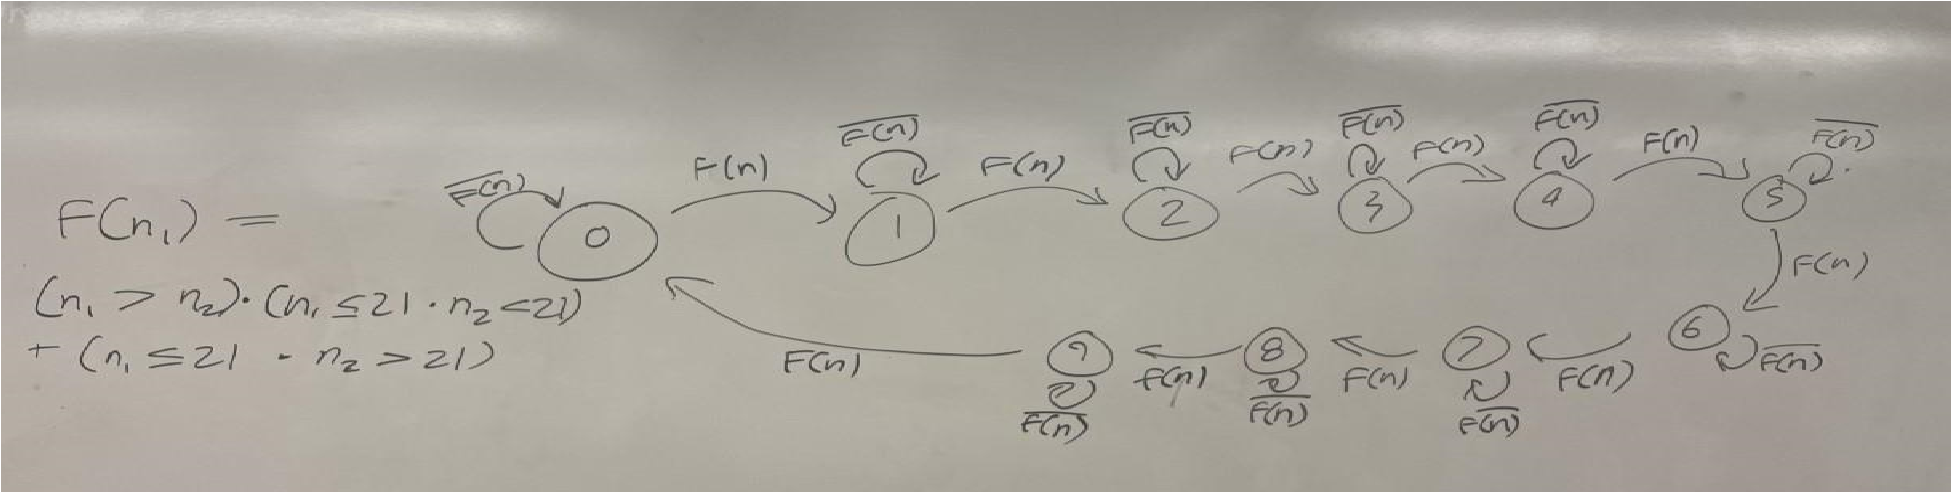 F(n₁) =
(n₁ > n₂)·(n₁ ≤ 21 · n₂ < 21)
+ (n₁ ≤ 21 · n₂ > 21)
F̅(̅n̅)̅
0
F(n)
F̅(̅n̅)̅
1
F(n)
F̅(̅n̅)̅
2
F(n)
F̅(̅n̅)̅
3
F(n)
F̅(̅n̅)̅
4
F(n)
F̅(̅n̅)̅
5
F(n)
6
F̅(̅n̅)̅
F(n)
7
F̅(̅n̅)̅
F(n)
8
F̅(̅n̅)̅
F(n)
9
F̅(̅n̅)̅
F(n)